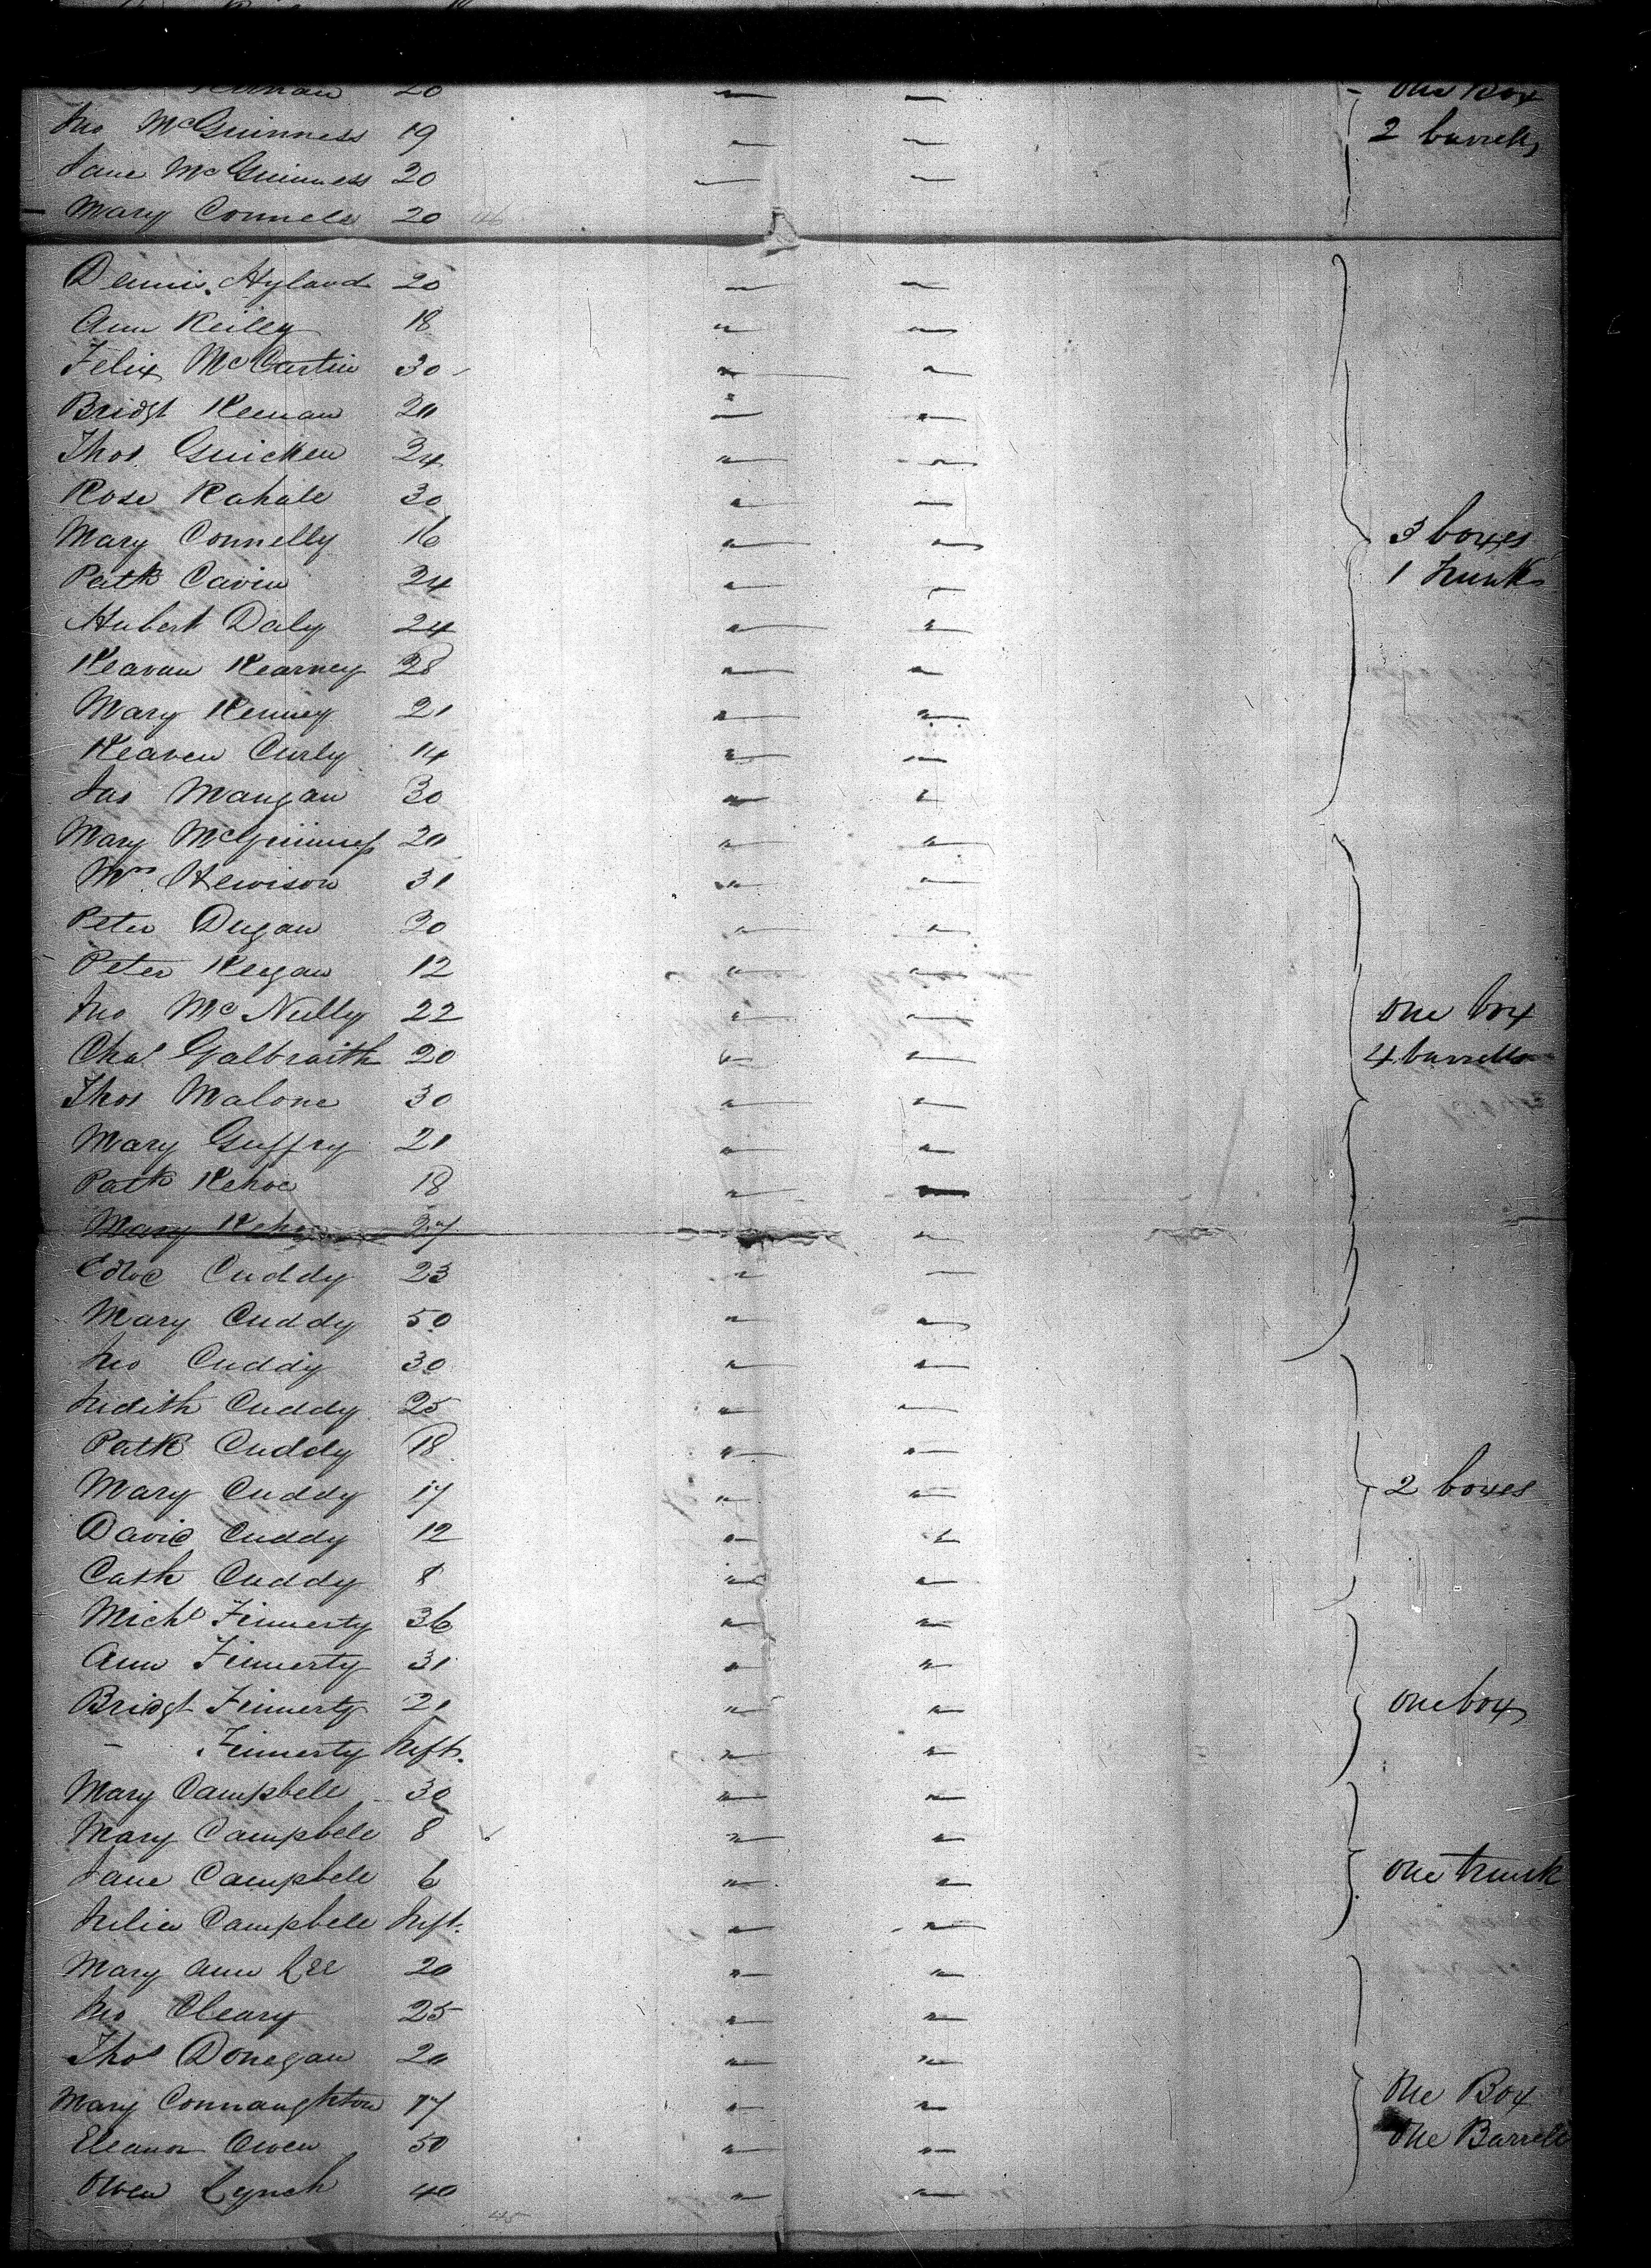 20 " " - One Box
Jno McGuinness 19 " " 2 barrells
Jane McGuinness 20 " "
Mary Connele 20 " "
Dennis Hyland 20 " "
Ann Reiley 18 " "
Felix McCartin 30 " "
Bridgt Keenan 20 " "
Thos Guicken 24 " "
Rose Kahale 30 " "
Mary Connelly 16 " " 3 boxes
Patk Cavin 24 " " 1 Trunk
Hubert Daly 24 " "
Keavan Kearney 28 " "
Mary Kenney 21 " "
Keaven Curly 14 " "
Jas Mangan 30 " "
Mary McGuinness 20 " "
Mrs Hewison 31 " "
Peter Dugan 20 " "
Peter Keegan 12 " "
Jno McNully 22 " " One box
Chas Galbraith 20 " " 4 barrells
Thos Malone 30 " "
Mary Guffry 21 " "
Patk Kehoe 18 " "
Mary Kehoe 27 " "
Edwd Cuddy 23 " "
Mary Cuddy 50 " "
Jno Cuddy 30 " "
Judith Cuddy 25 " "
Patk Cuddy 18 " "
Mary Cuddy 17 " " 2 boxes
David Cuddy 12 " "
Cath Cuddy 8 " "
Michl Finnerty 36 " "
Ann Finnerty 31 " "
Bridgt Finnerty 21 " " One box
- Finnerty Inft. " "
Mary Campbell 30 " "
Mary Campbele 8 " "
Jane Campbele 6 " " One trunk
Julia Campbele Inft. " "
Mary Ann Lee 20 " "
Jno Cleary 25 " "
Thos Donegan 20 " "
Mary Connaughton 17 " " One Box
Eleanor Owen 50 " " One Barrell
Owen Lynch 40 " "
45